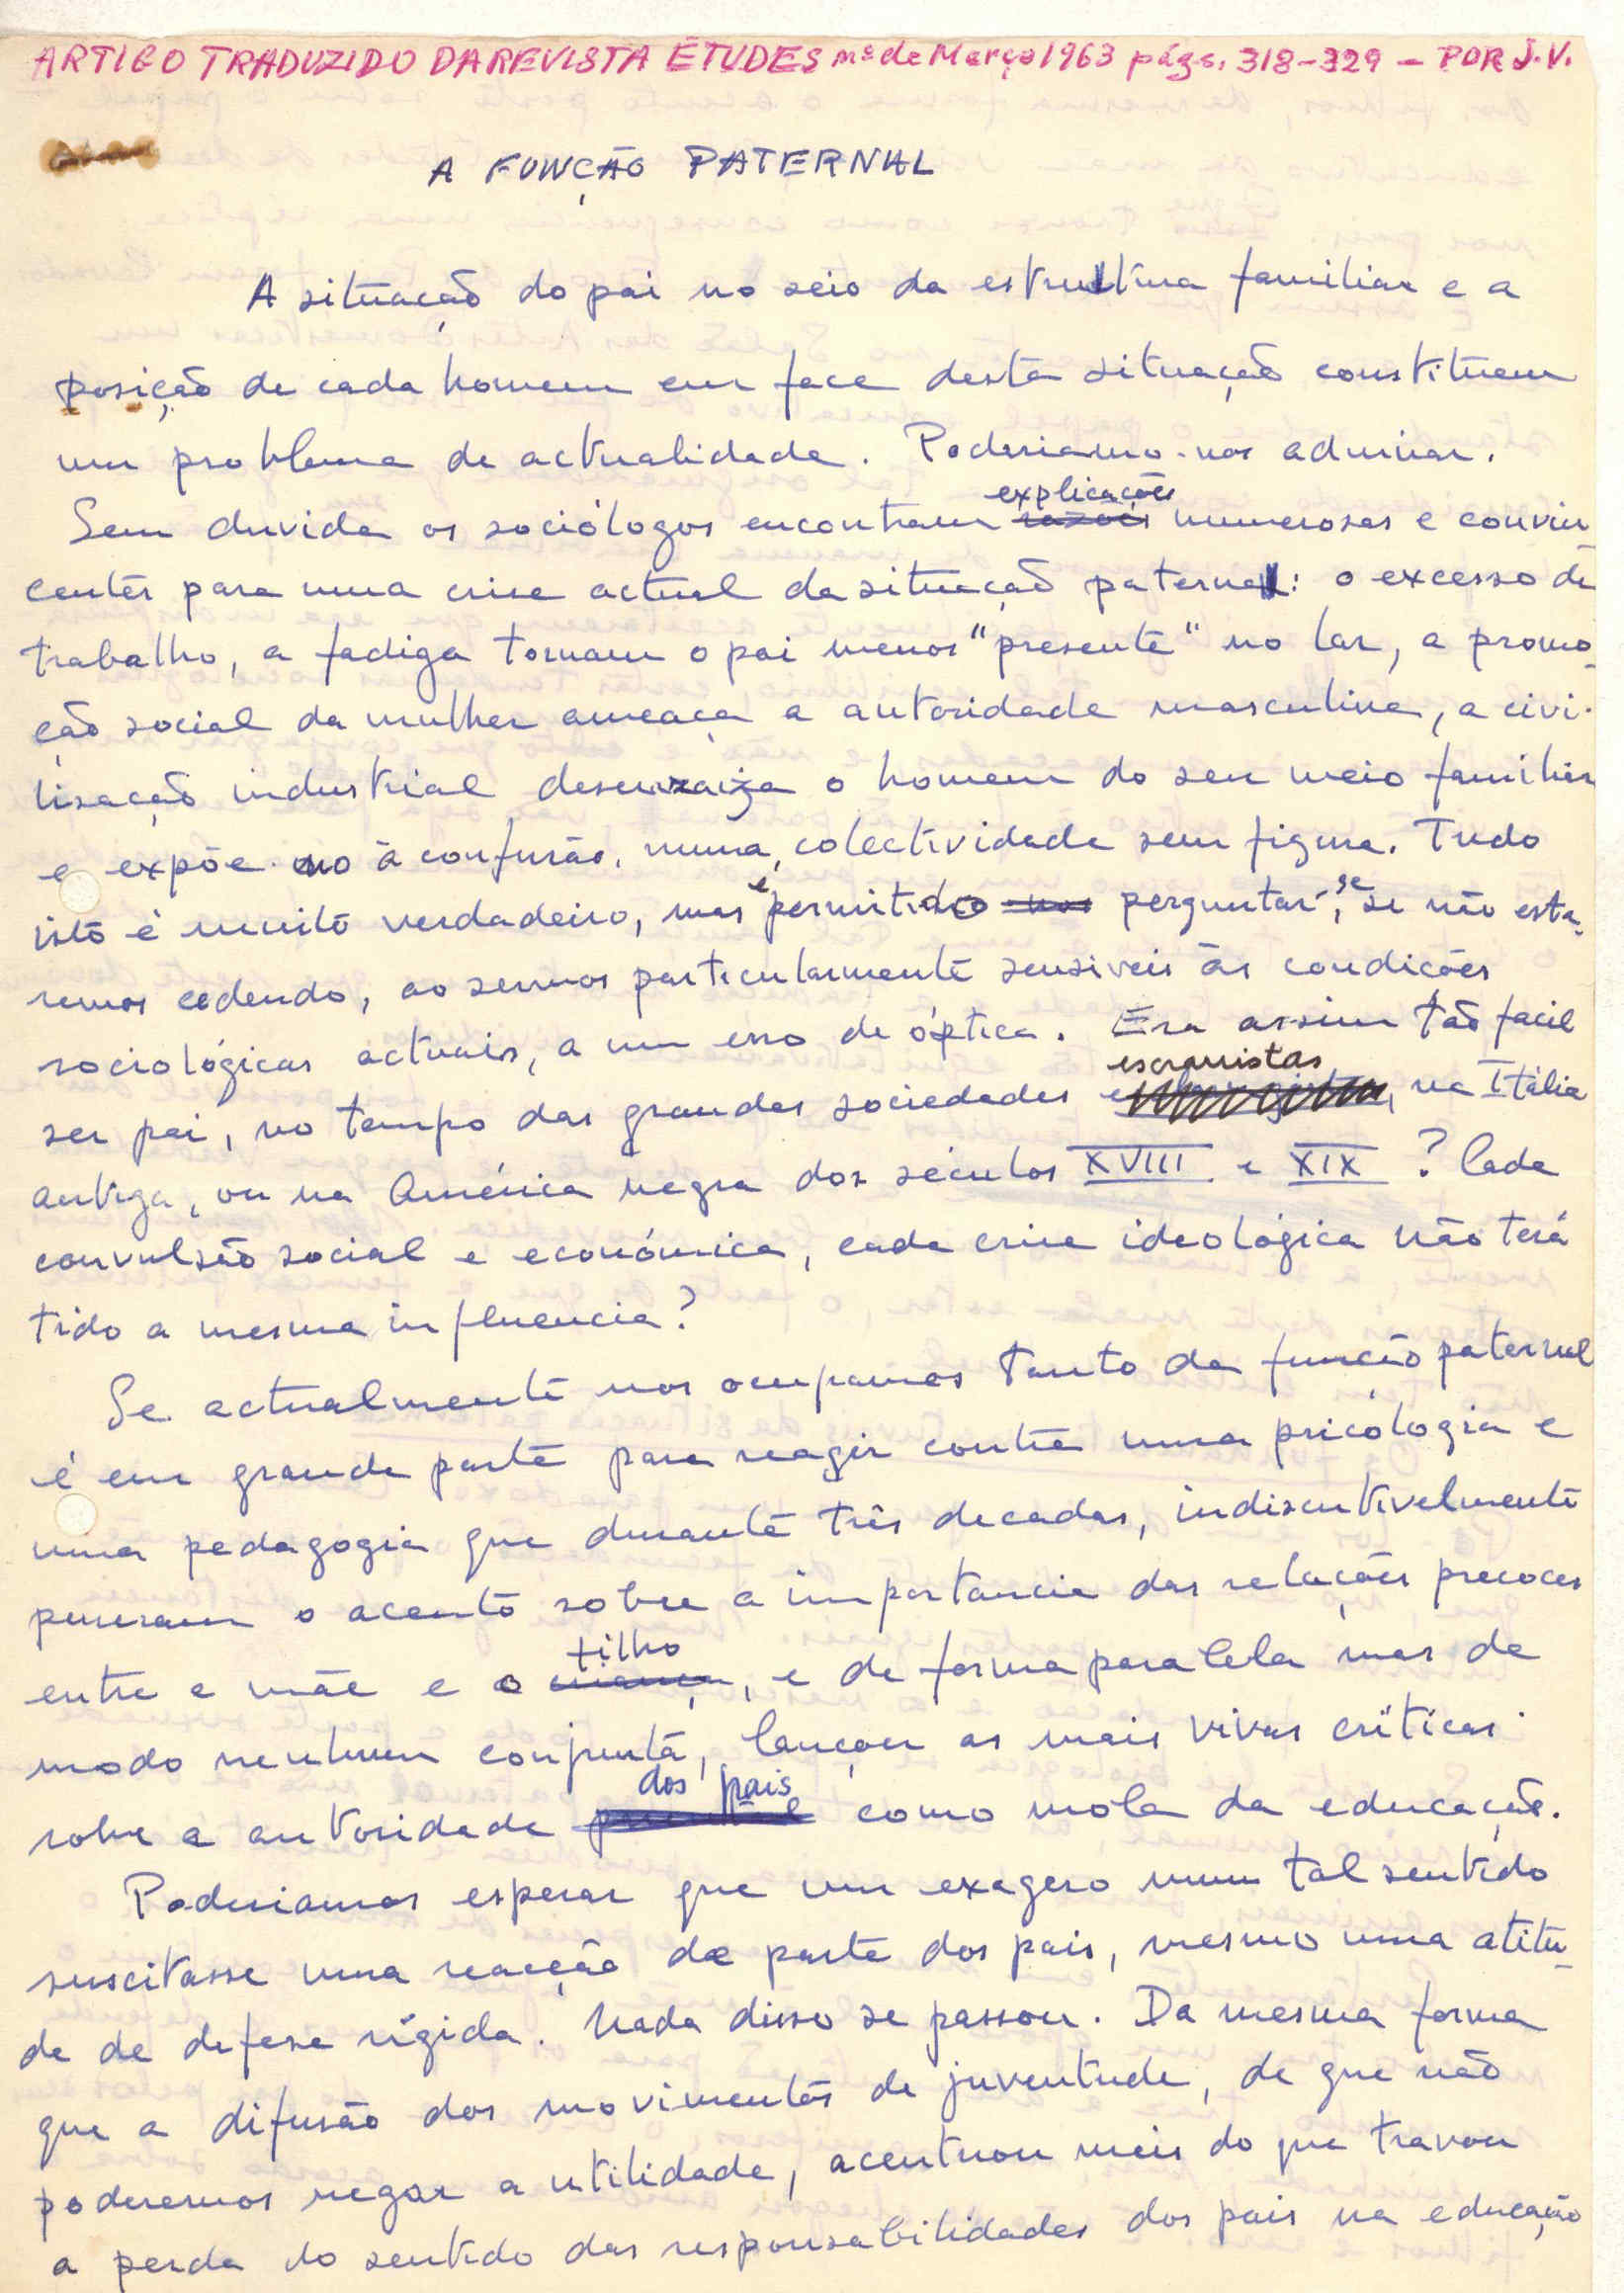 ARTIGO TRADUZIDO DA REVISTA ÉTUDES nº de Março 1963 págs. 318-329 — POR J.V.
A FUNÇÃO PATERNAL
A situação do pai no seio da estrutura familiar e a
posição de cada homem em face desta situação constituem
um problema de actualidade. Poderiamo-nos admirar.
explicações
Sem duvida os sociólogos encontram razoẽs numerosas e convin
centes para uma crise actual da situação paternal: o excesso de
trabalho, a fadiga tornam o pai menos "presente" no lar, a promo-
ção social da mulher ameaça a autoridade masculina, a civi-
lisação industrial desenraiza o homem do seu meio familiar
e expõe-no à confusão, numa colectividade sem figura. Tudo
isto é muito verdadeiro, mas é permitido nos perguntar-se, se não esta-
remos cedendo, ao sermos particularmente sensiveis às condições
sociológicas actuais, a um erro de óptica. Era assim tão facil
escravistas
ser pai, no tempo das grandes sociedades, na Itália
antiga, ou na América negra dos séculos XVIII e XIX ? Cada
convulsão social e económica, cada crise ideológica não terá
tido a mesma influencia?
Se actualmente nos ocupamos tanto da função paternal
é em grande parte para reagir contra uma psicologia e
uma pedagogia que durante três decadas, indiscutivelmente
puseram o acento sobre a importancia das relações precoces
filho
entre a mãe e o criança, e de forma paralela mas de
modo nenhum conjunta, lançou as mais vivas críticas
dos pais
sobre a autoridade como mola da educação.
Poderiamos esperar que um exagero num tal sentido
suscitasse uma reacção da parte dos pais, mesmo uma atitu-
de de defesa rígida. Nada disso se passou. Da mesma forma
que a difusão dos movimentos de juventude, de que não
poderemos negar a utilidade, acentuou mais do que travou
a perda do sentido das responsabilidades dos pais na educação